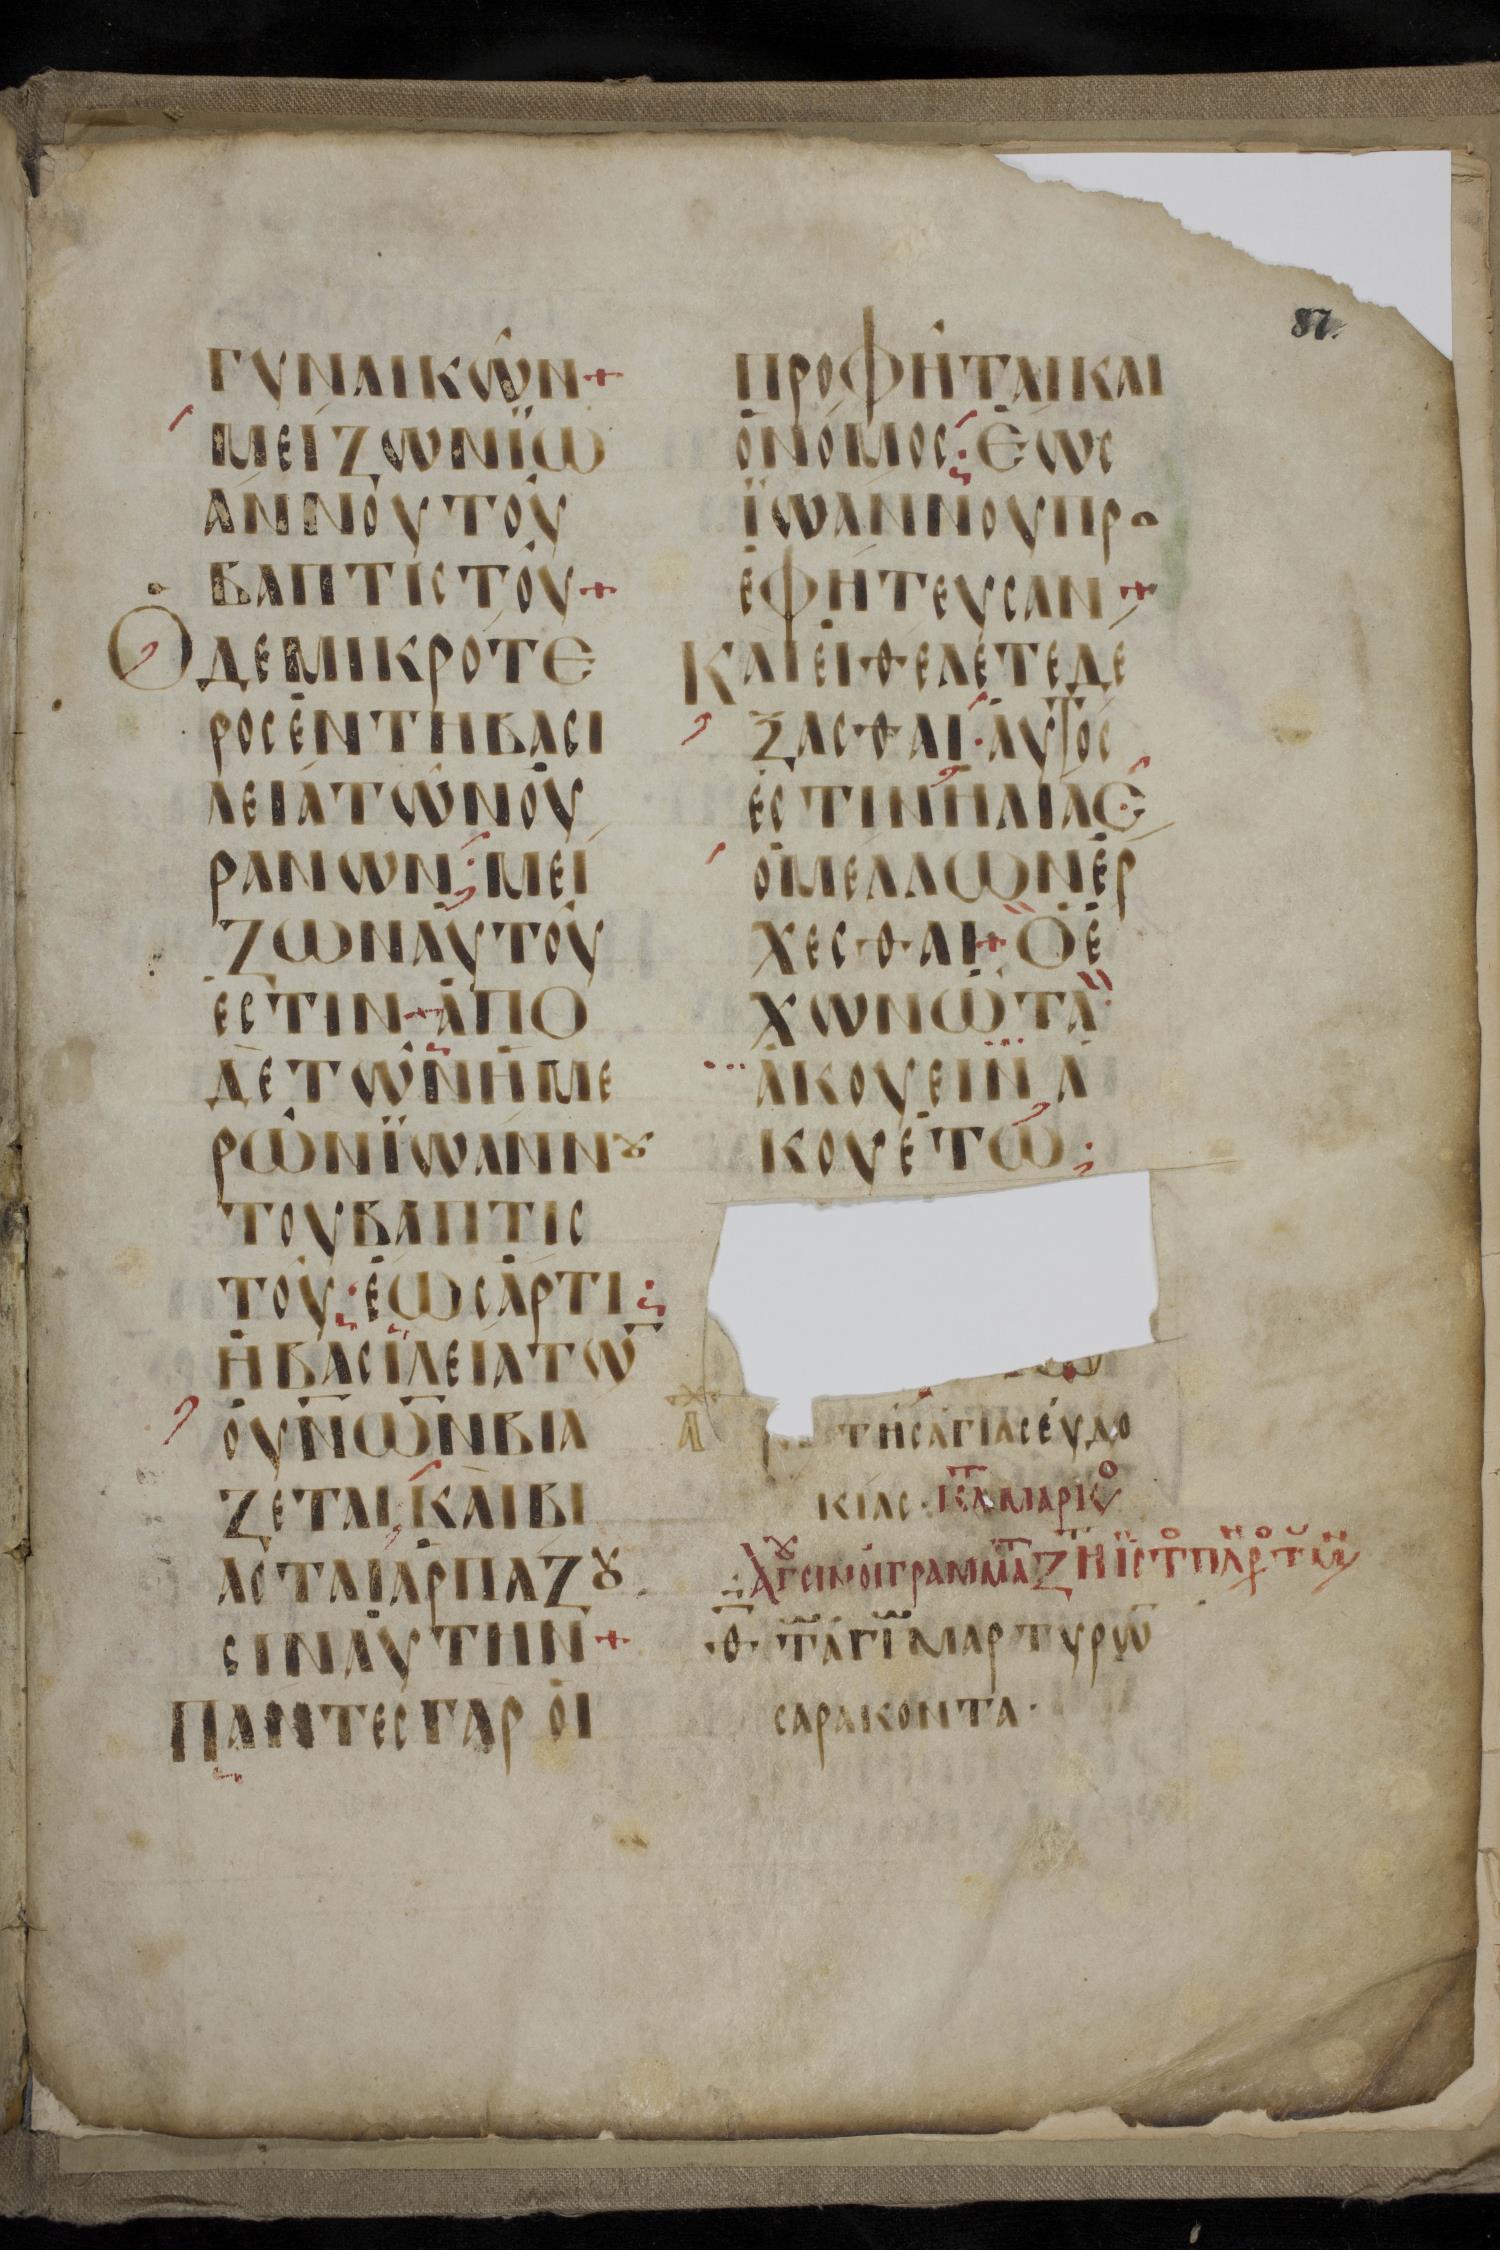 87
ΓΥΝΑΙΚῶΝ+
ΜΕΙΖΩΝΪΩ
ΑΝΝΟΥΤΟΥ
ΒΑΠΤΙϹΤΟΥ+
ὉΔΕΜΙΚΡΟΤΕ
ΡΟϹΕΝΤΗΒΑϹΙ
ΛΕΙΑΤΩΝΟΥ
ΡΑΝΩΝ:ΜΕΙ
ΖΩΝΑΥΤΟΥ
ΕϹΤΙΝ+ΑΠΟ
ΔΕΤΩΝΗΜΕ
ΡΩΝΪΩΑΝΝȣ
ΤΟΥΒΑΠΤΙϹ
ΤΟΥ:ΕΩϹΑΡΤΙ:
ΗΒΑϹΙΛΕΙΑΤΩ̅
ΟΥΝ̅ΩΝ̅ΒΙΑ
ΖΕΤΑΙ,ΚΑΙΒΙ
ΑϹΤΑΙΑΡΠΑΖȣ
ϹΙΝΑΥΤΗΝ+
ΠΑΝΤΕϹΓΑΡ ΟΙ
ΠΡΟΦΗΤΑΙΚΑΙ
ΟΝΟΜΟϹ:ΕΩϹ
ΪΩΑΝΝΟΥΠΡΟ
ΕΦΗΤΕΥϹΑΝ+
ΚΑΙΕΙΘΕΛΕΤΕΔΕ
ΞΑϹΘΑΙ·ΑΥΤΟϹ
ΕϹΤΙΝΗΛΙΑϹ
ΟΜΕΛΛΩΝΕΡ
ΧΕϹΘΑΙ+ΟΕ
ΧΩΝΩΤΑ
ΑΚΟΥΕΙΝ Α
ΚΟΥΕΤΩ:
ΤΗϹΑΓΙΑϹΕΥΔΟ
ΚΙΑϹ·
Θ ΜΑΡΤΥΡΩ̅
ϹΑΡΑΚΟΝΤΑ·